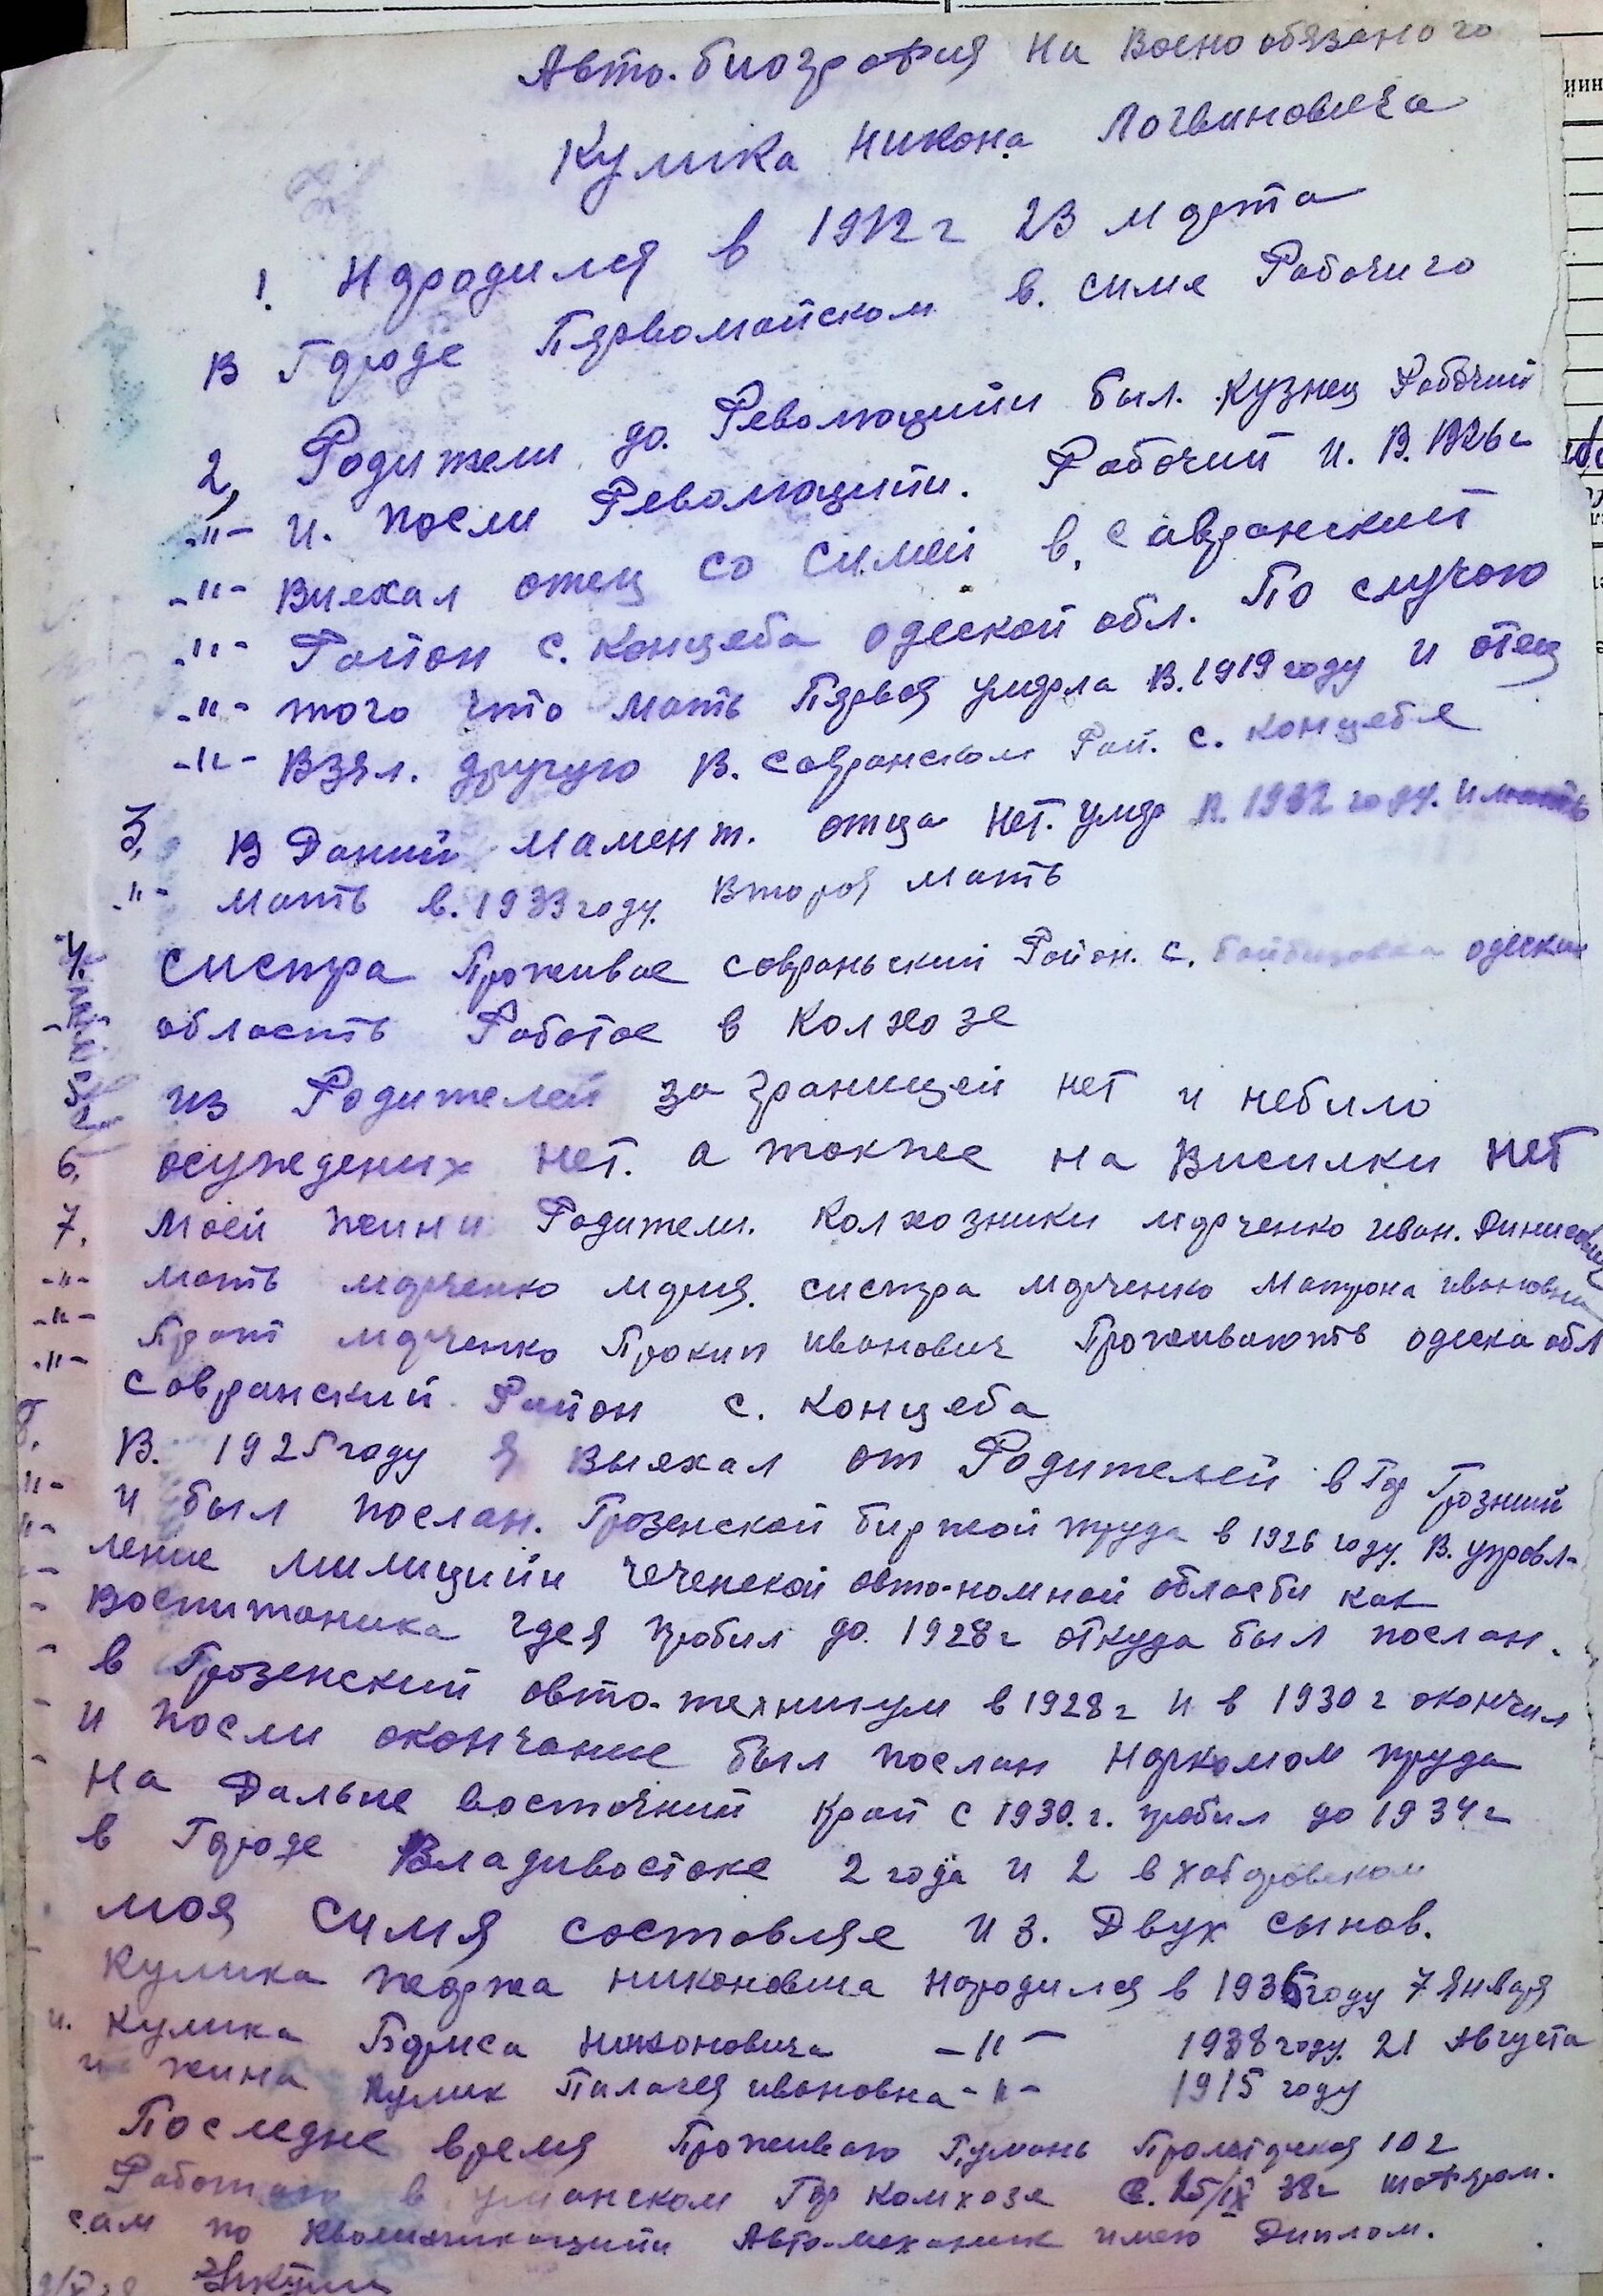 Авто-биография на Военообязаного
Кулика Никона Логвиновича
1. Народился в 1912 г 23 марта
В Городе Первомайском в. симе Рабочиго
2, Родители до. Революцийи был. Кузнец Рабочий
-"- и. посли Революцийи. Рабочий и. В. 1926 г
-"- Виехал отец со симей в. Савранский
-"- Район с. Концеба одеской обл. По случаю
-"- того что мать Первая умерла В. 1919 году и отец
-"- Взял. другую В. Савранском Рай. с. Концебе
3, В Даний Мамент. отца нет. умер в. 1932 году. и мать
-"- мать в. 1933 году. Вторая мать
4. систра Проживае Савраньский Район. с. одеская
область Работае в Колхозе
5. из Родителей за границей нет и небило
6, осуждених нет. а также на Висилки нет
7. Моей жини Родители. Колхозники Марченко иван. Динисович
-"- мать марченко мария. систра марченко Матрона ивановна
-"- Брат марченко Прокип иванович Проживають одеска обл
-"- Савранский Район с. Концеба
8. В. 1925 году я выехал от Родителей в Гор Грозний
-"- и был послан. Грозенской биржой труда в 1926 году. В. управ-
-"- ление милицийи чеченской авто-номной области как
воспитаника где я пробил до. 1928 г откуда был послан.
в Грозенский авто-техникум в 1928 г и в 1930 г окончил
и посли окончание был послан Наркомом труда
на Дальне восточний край с 1930. г. пробил до 1934 г
в Городе Владивостоке 2 года и 2 в хабаровском
моя симя составляе из. Двух сынов.
Кулика жоржа никоновича народился в 1936 году 7 Января
и. Кулика Бориса Никоновича -"- 1938 году. 21 Августа
и жина Кулик Пилагея ивановна -"- 1915 году
Последне время Проживаю Г. умань Пролетарская 102
Работаю в. уманском Гор Комхозе с. 15/IX 38 г шофером.
сам по Квалификацийи Авто-механик имею Диплом.